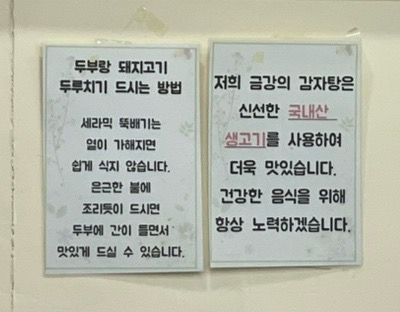 두부랑 돼지고기
두루치기 드시는 방법
세라믹 뚝배기는
열이 가해지면
쉽게 식지 않습니다.
은근한 불에
조리듯이 드시면
두부에 간이 들면서
맛있게 드실 수 있습니다.
저희 금강의 감자탕은
신선한 국내산
생고기를 사용하여
더욱 맛있습니다.
건강한 음식을 위해
항상 노력하겠습니다.